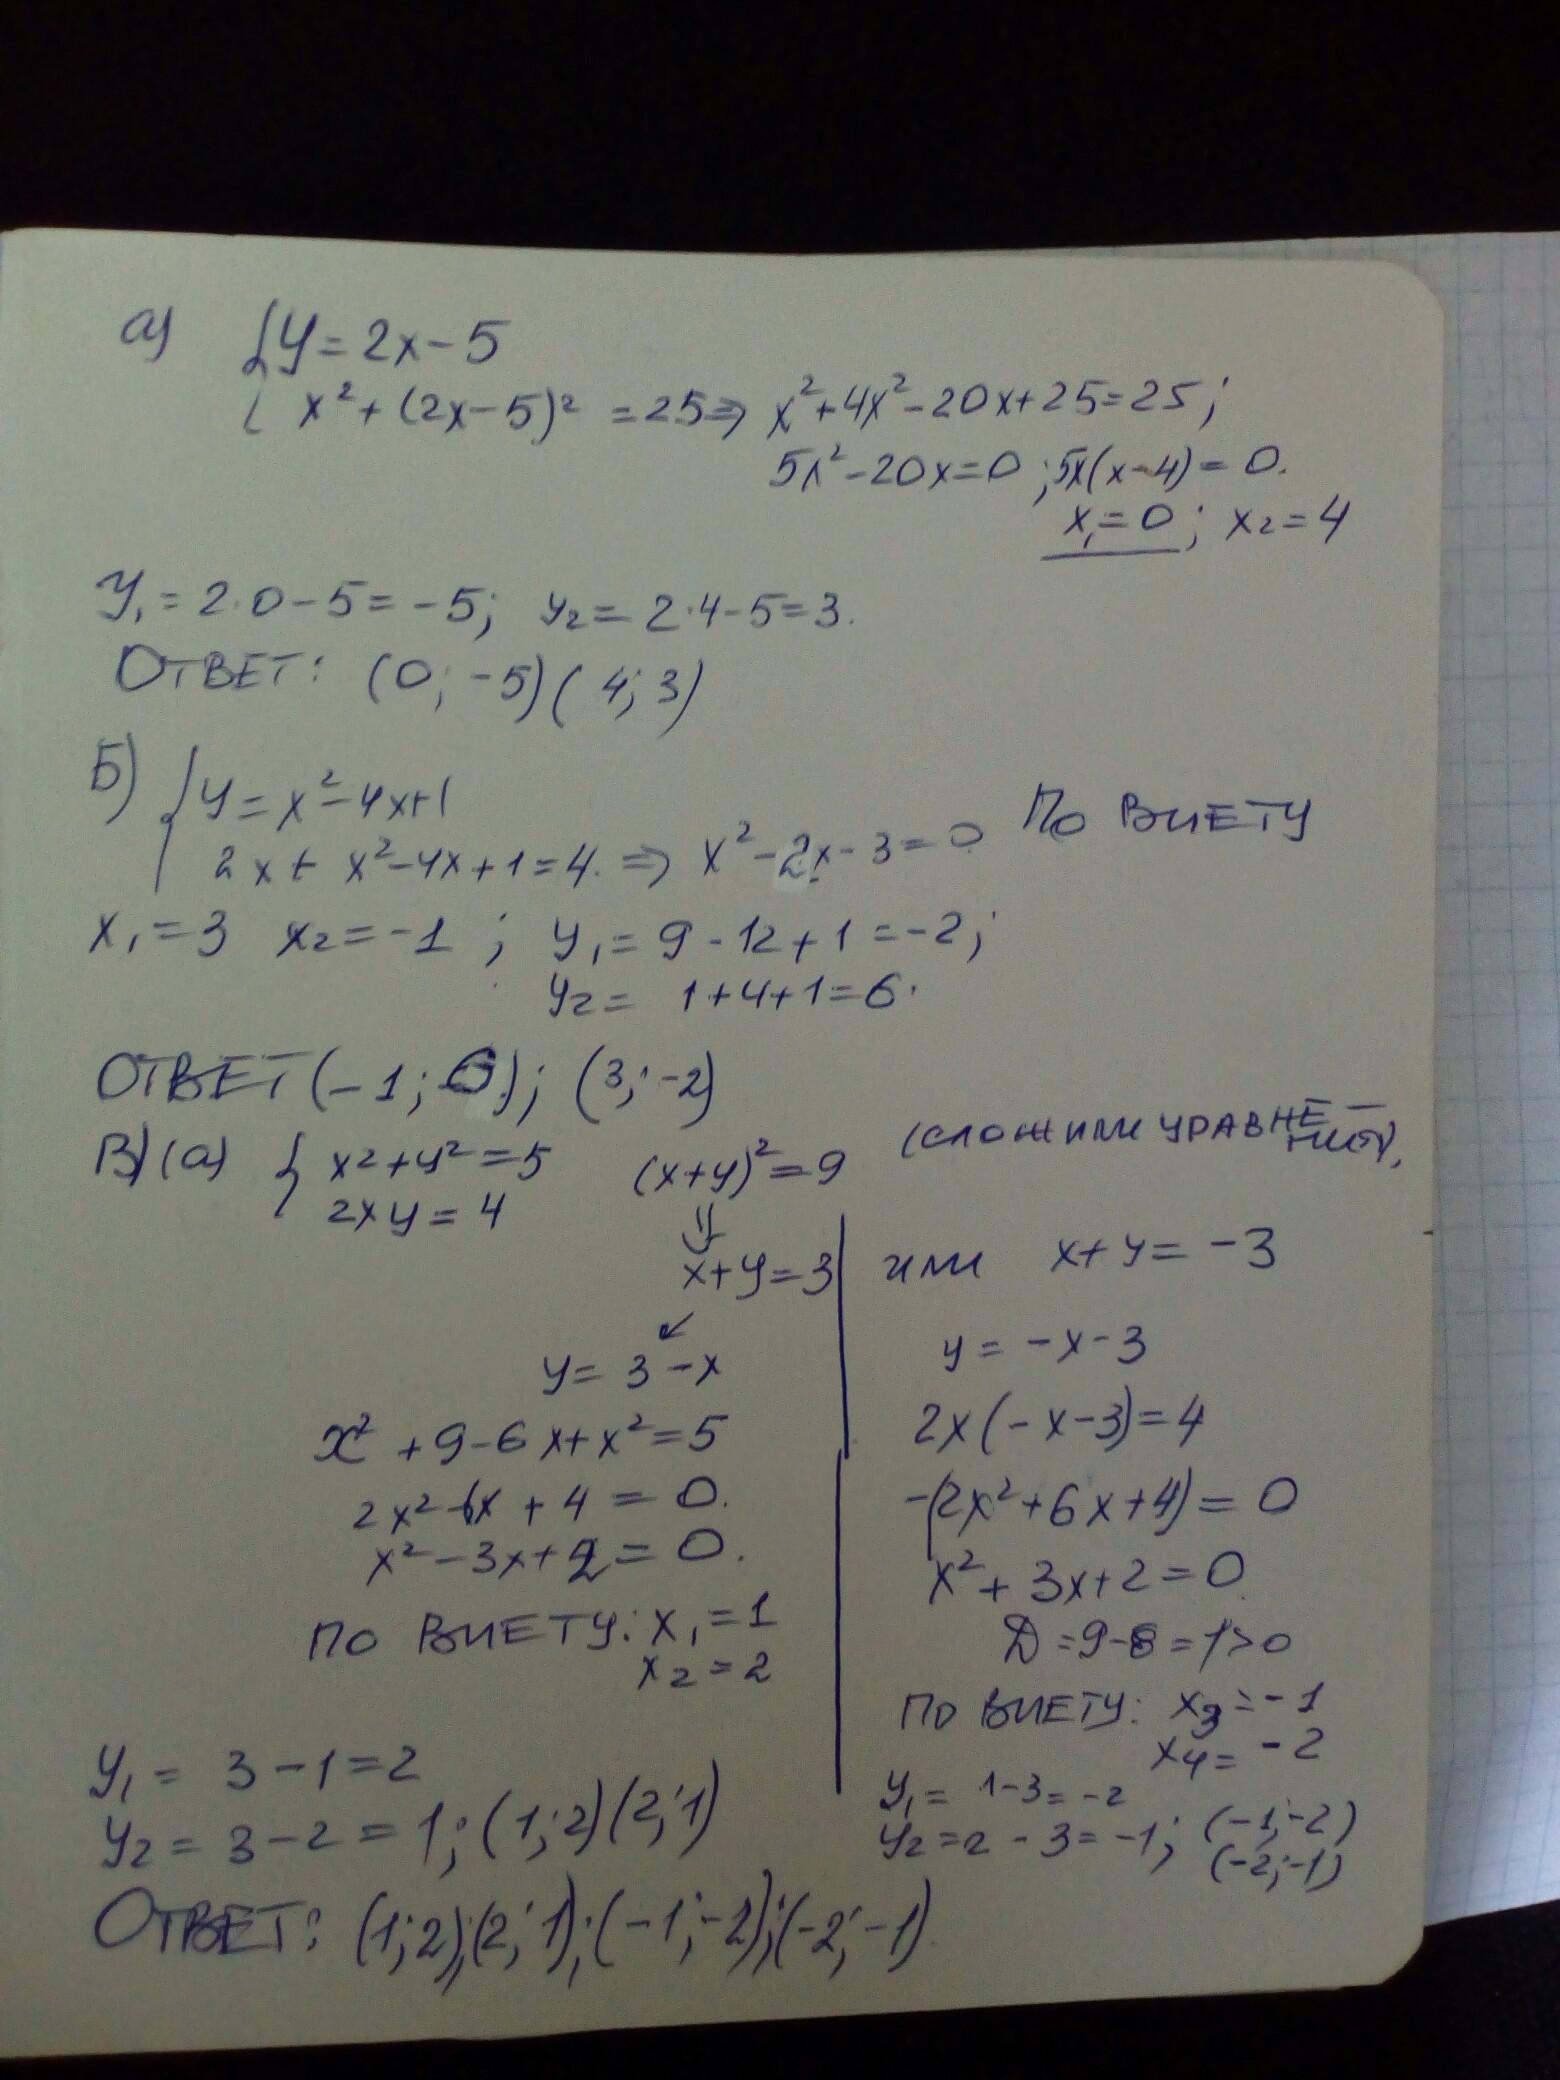 а) { y = 2x - 5
x² + (2x - 5)² = 25 => x² + 4x² - 20x + 25 = 25;
5x² - 20x = 0; 5x(x - 4) = 0.
x₁ = 0; x₂ = 4
y₁ = 2·0 - 5 = -5; y₂ = 2·4 - 5 = 3.
ОТВЕТ: (0; -5) (4; 3)
Б) { y = x² - 4x + 1
2x + x² - 4x + 1 = 4. => x² - 2x - 3 = 0 ПО ВИЕТУ
x₁ = 3 x₂ = -1; y₁ = 9 - 12 + 1 = -2;
y₂ = 1 + 4 + 1 = 6.
ОТВЕТ (-1; 6); (3; -2)
В) (а) { x² + y² = 5 (x + y)² = 9 (СЛОЖИЛИ УРАВНЕ-
2xy = 4 НИЯ),
⇓
x + y = 3 | или x + y = -3
↙
y = 3 - x
x² + 9 - 6x + x² = 5
2x² - 6x + 4 = 0.
x² - 3x + 2 = 0.
ПО ВИЕТУ: x₁ = 1
x₂ = 2
y₁ = 3 - 1 = 2
y₂ = 3 - 2 = 1; (1; 2) (2; 1)
y = -x - 3
2x(-x - 3) = 4
-(2x² + 6x + 4) = 0
x² + 3x + 2 = 0
D = 9 - 8 = 1 > 0
ПО ВИЕТУ: x₃ = -1
x₄ = -2
y₁ = 1 - 3 = -2
y₂ = 2 - 3 = -1; (-1; -2)
(-2; -1)
ОТВЕТ: (1; 2); (2; 1); (-1; -2); (-2; -1).